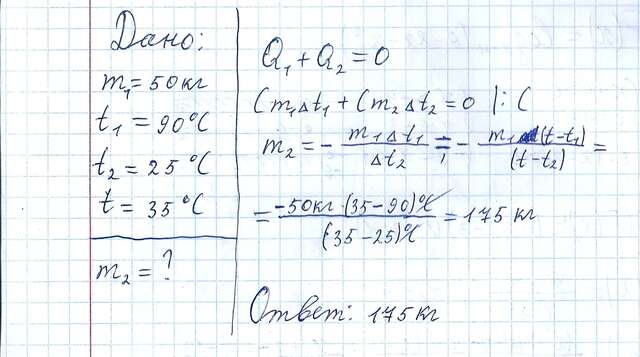 Дано:
m₁ = 50 кг
t₁ = 90 °C
t₂ = 25 °C
t = 35 °C
m₂ = ?
Q₁ + Q₂ = 0
Cm₁Δt₁ + Cm₂Δt₂ = 0 |: C
m₂ = - m₁Δt₁ / Δt₂ = - m₁(t-t₁) / (t-t₂) =
= -50кг·(35-90)°C / (35-25)°C = 175 кг
Ответ: 175 кг